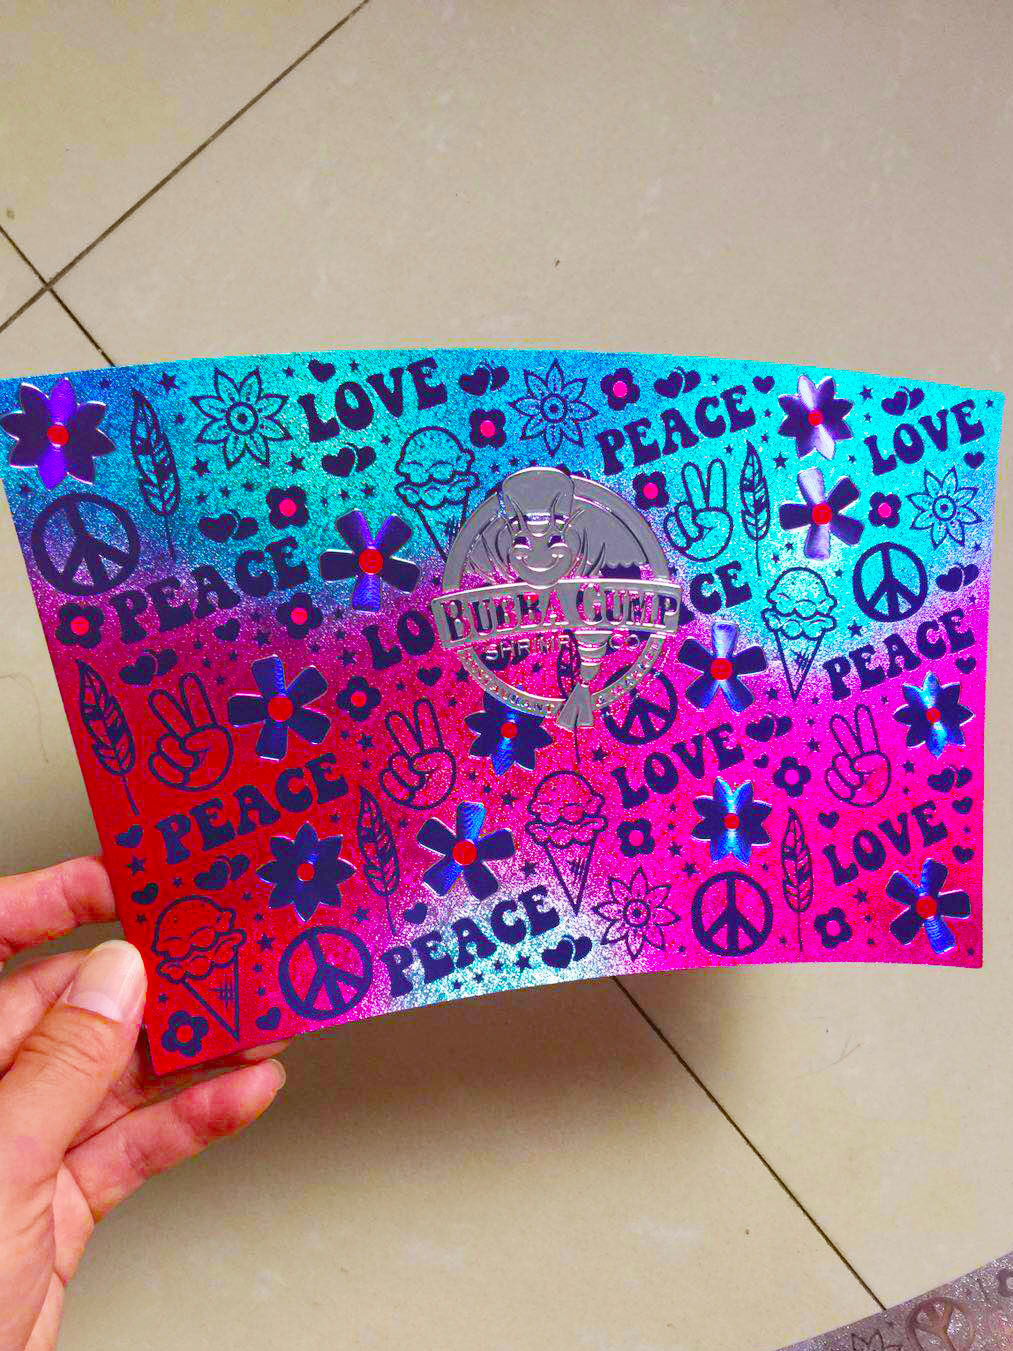 LOVE
PEACE
LOVE
PEACE
LO
CE
BUBBA GUMP
SHRIMP CO
PEACE
LOVE
PEACE
LOVE
PEACE